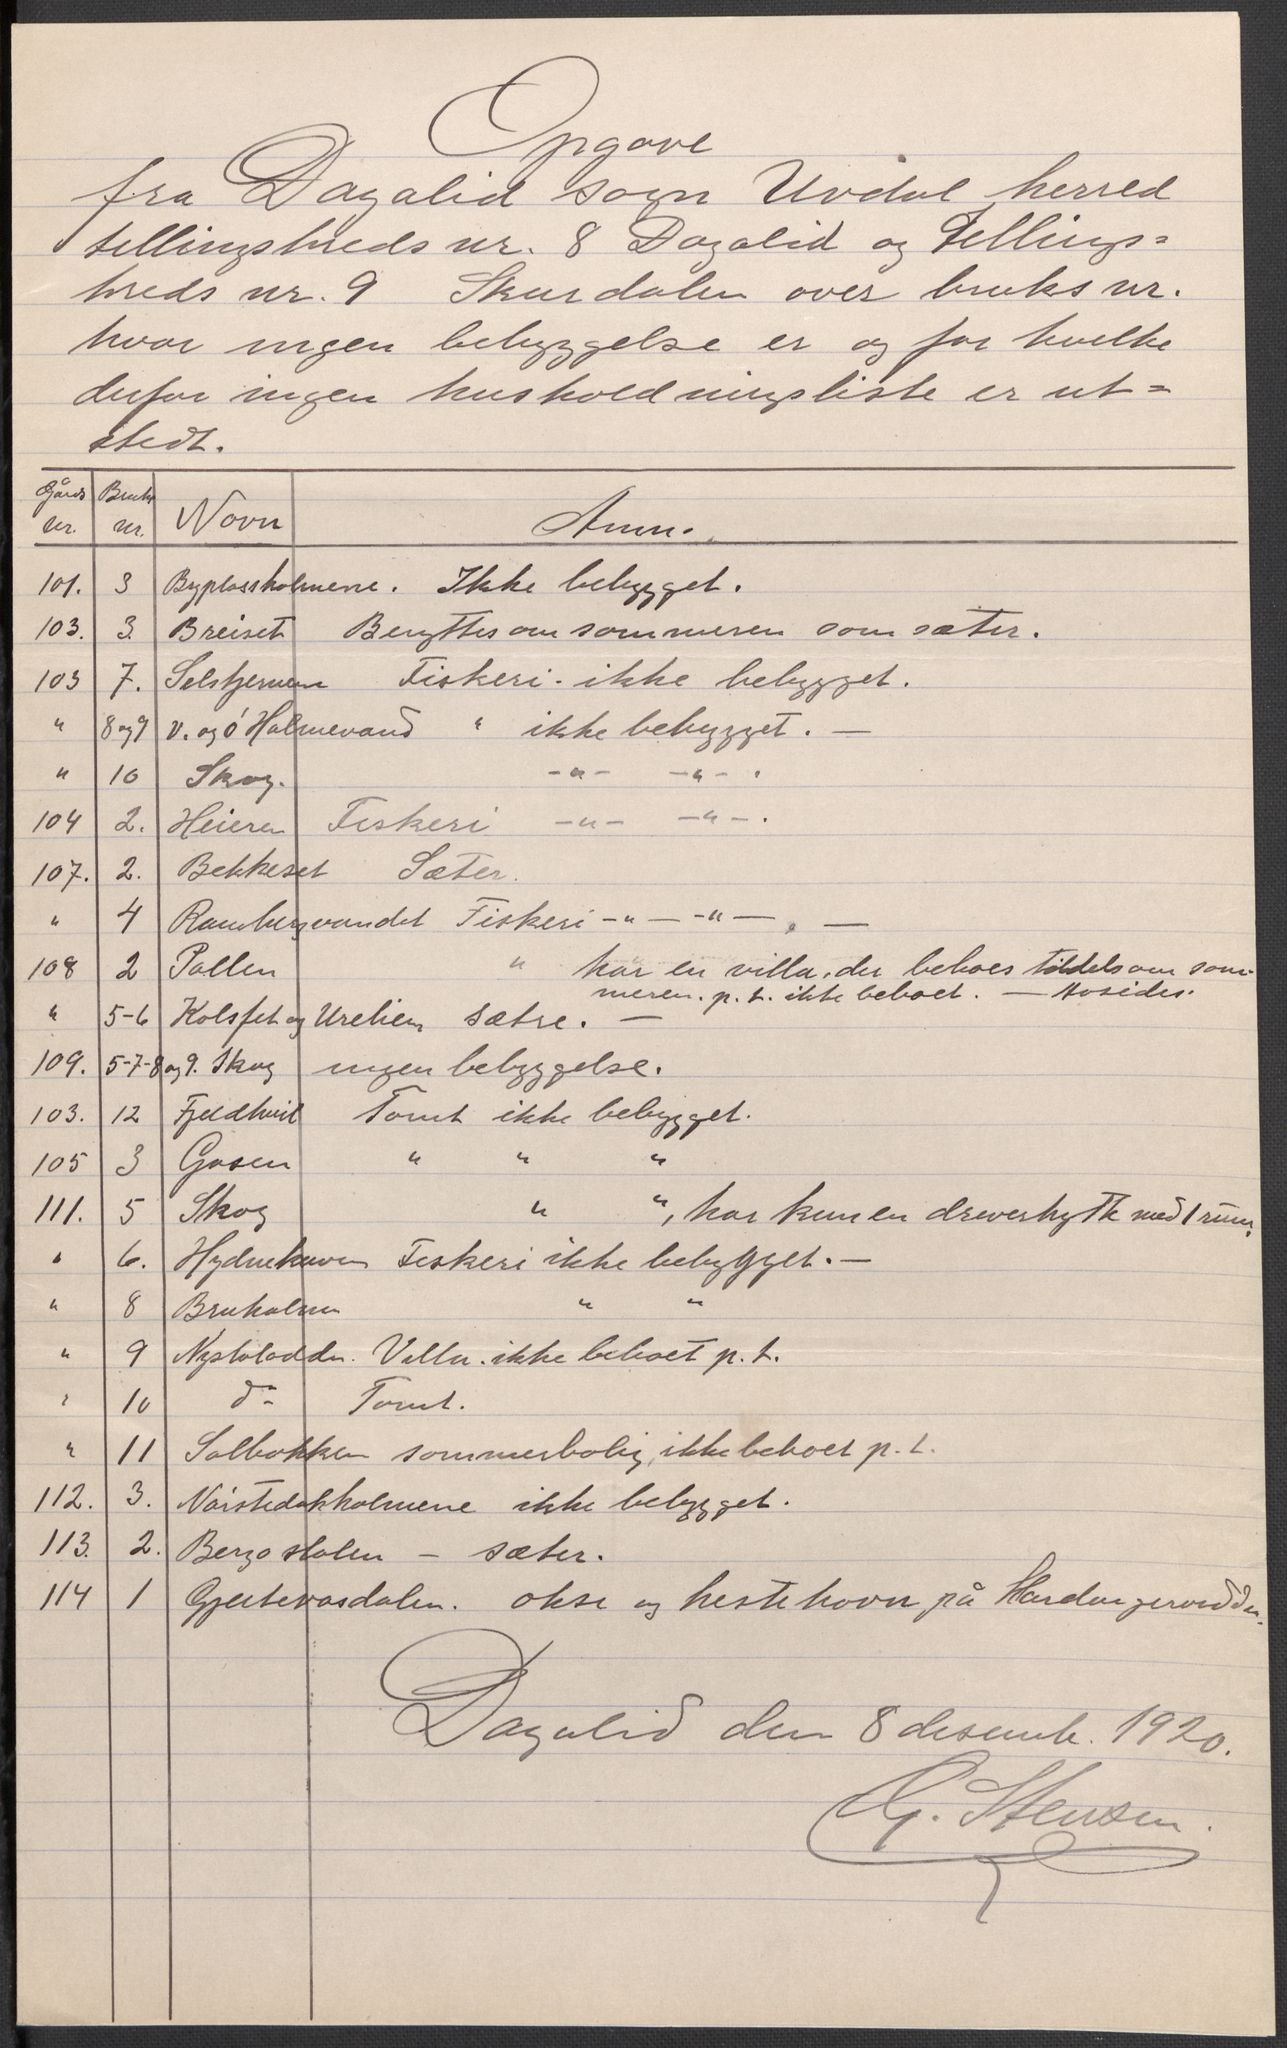 Opgave
fra Dagalid sogn Uvdal herred
tellingskreds nr. 8 Dagalid og Tellings=
kreds nr. 9 Skurdalen over bruks nr.
hvor ingen bebyggelse er og for hvilke
derfor ingen husholdningsliste er ut=
stedt.
Gårds nr. Bruks nr. Navn Anm.
101. 3 Byplassholmene. Ikke bebygget.
103. 3. Breiset Benyttes om sommeren som sæter.
103 7. Selstjernene Fiskeri - ikke bebygget.
" 8 og 9 V. og Ö Halnevand " ikke bebygget. —
" 10 Skog. -"- -"- .
104 2. Heieren Fiskeri -"- -"- .
107. 2. Bekkeset Sæter.
" 4 Rambergvandet Fiskeri -"- -"- , —
108 2 Pallen " har en villa, der beboes tildels om som-
meren. p.t. ikke beboet. —
" 5-6 Kolsfet og Urelien sætre. —
109. 5-7-8 og 9. Skog ingen bebyggelse.
103. 12 Fjeldhvil Tomt ikke bebygget.
105 3 Gåsen " " "
111. 5 Skog " ", har kun en driverhytte med 1 rum.
" 6. Fiskeri ikke bebygget. —
" 8 Bruholmen " "
" 9 Nystoladden. Villa. ikke beboet p.t.
" 10 do Tomt.
" 11 Solbakken sommerbolig, ikke beboet p.t.
112. 3. ikke bebygget.
113. 2. Bergastølen – sæter.
114 1 Gjeitevasdalen. okse og hestehavn på Hardangervidden.
Dagalid den 8 desemb. 1920.
G. Stensen.